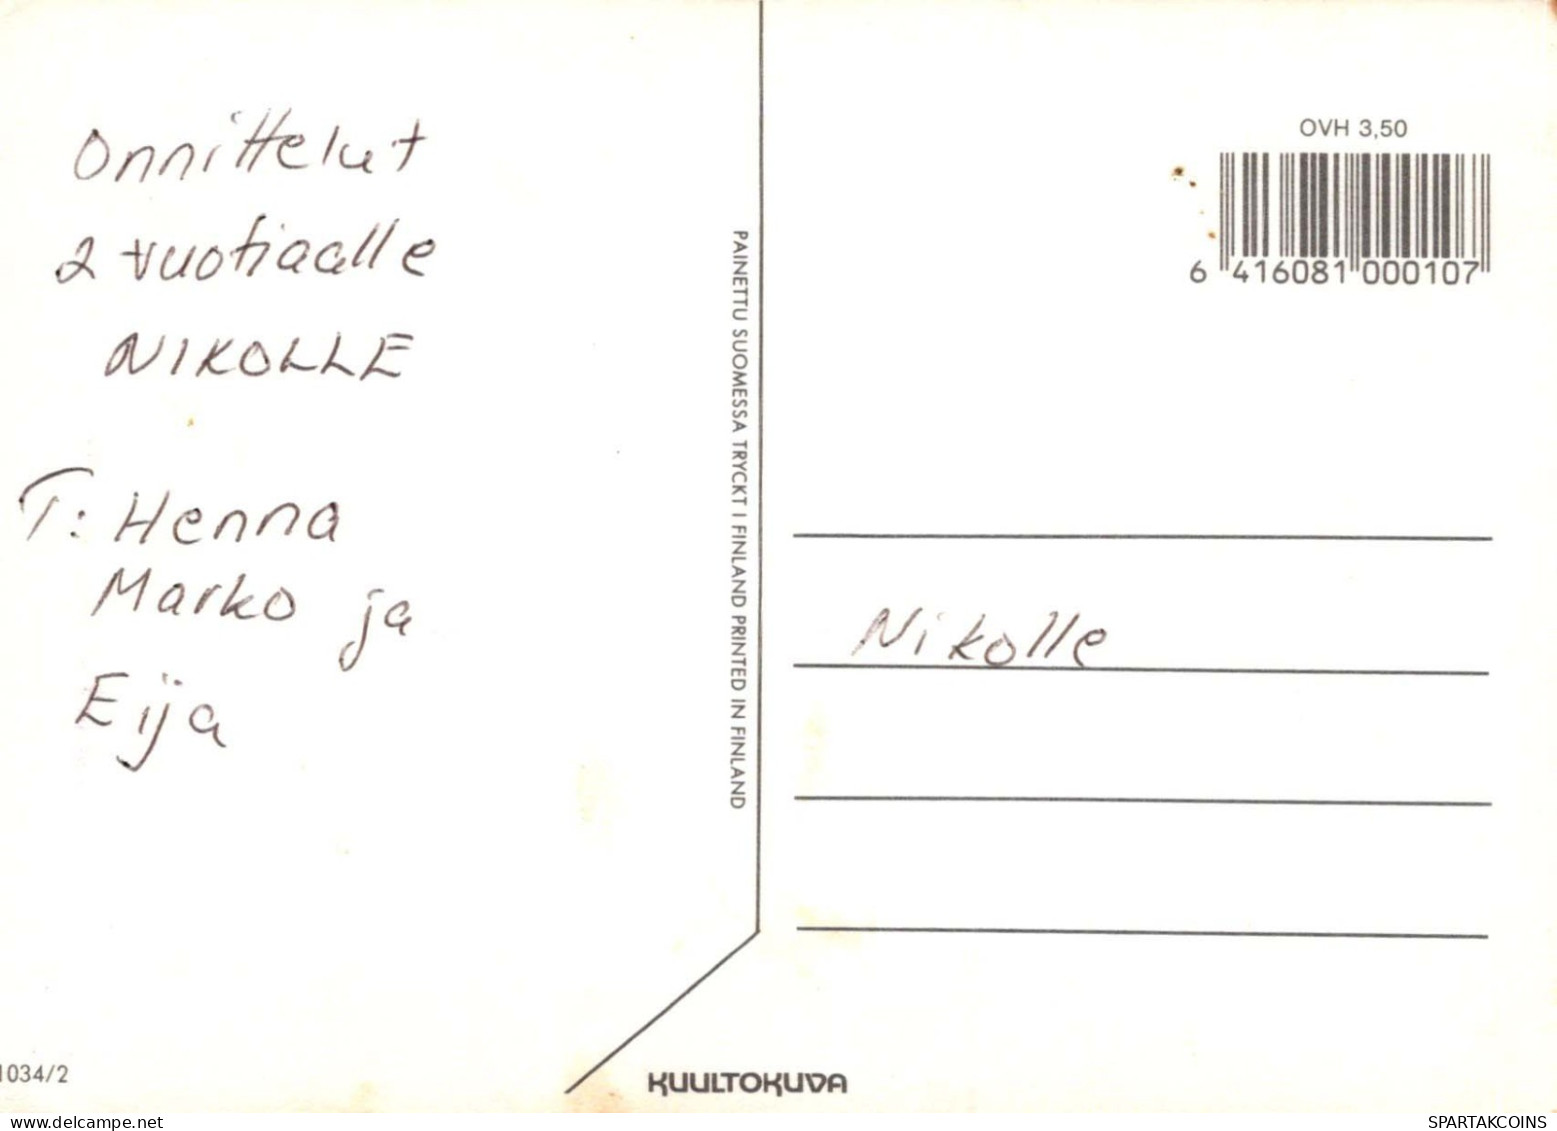 Onnittelut
2 vuotiaalle
NIKOLLE
T: Henna
Marko ja
Eija
1034/2
PAINETTU SUOMESSA TRYCKT I FINLAND PRINTED IN FINLAND
KUULTOKUVA
OVH 3,50
6 416081 000107
Nikolle
SPARTAKCOINS